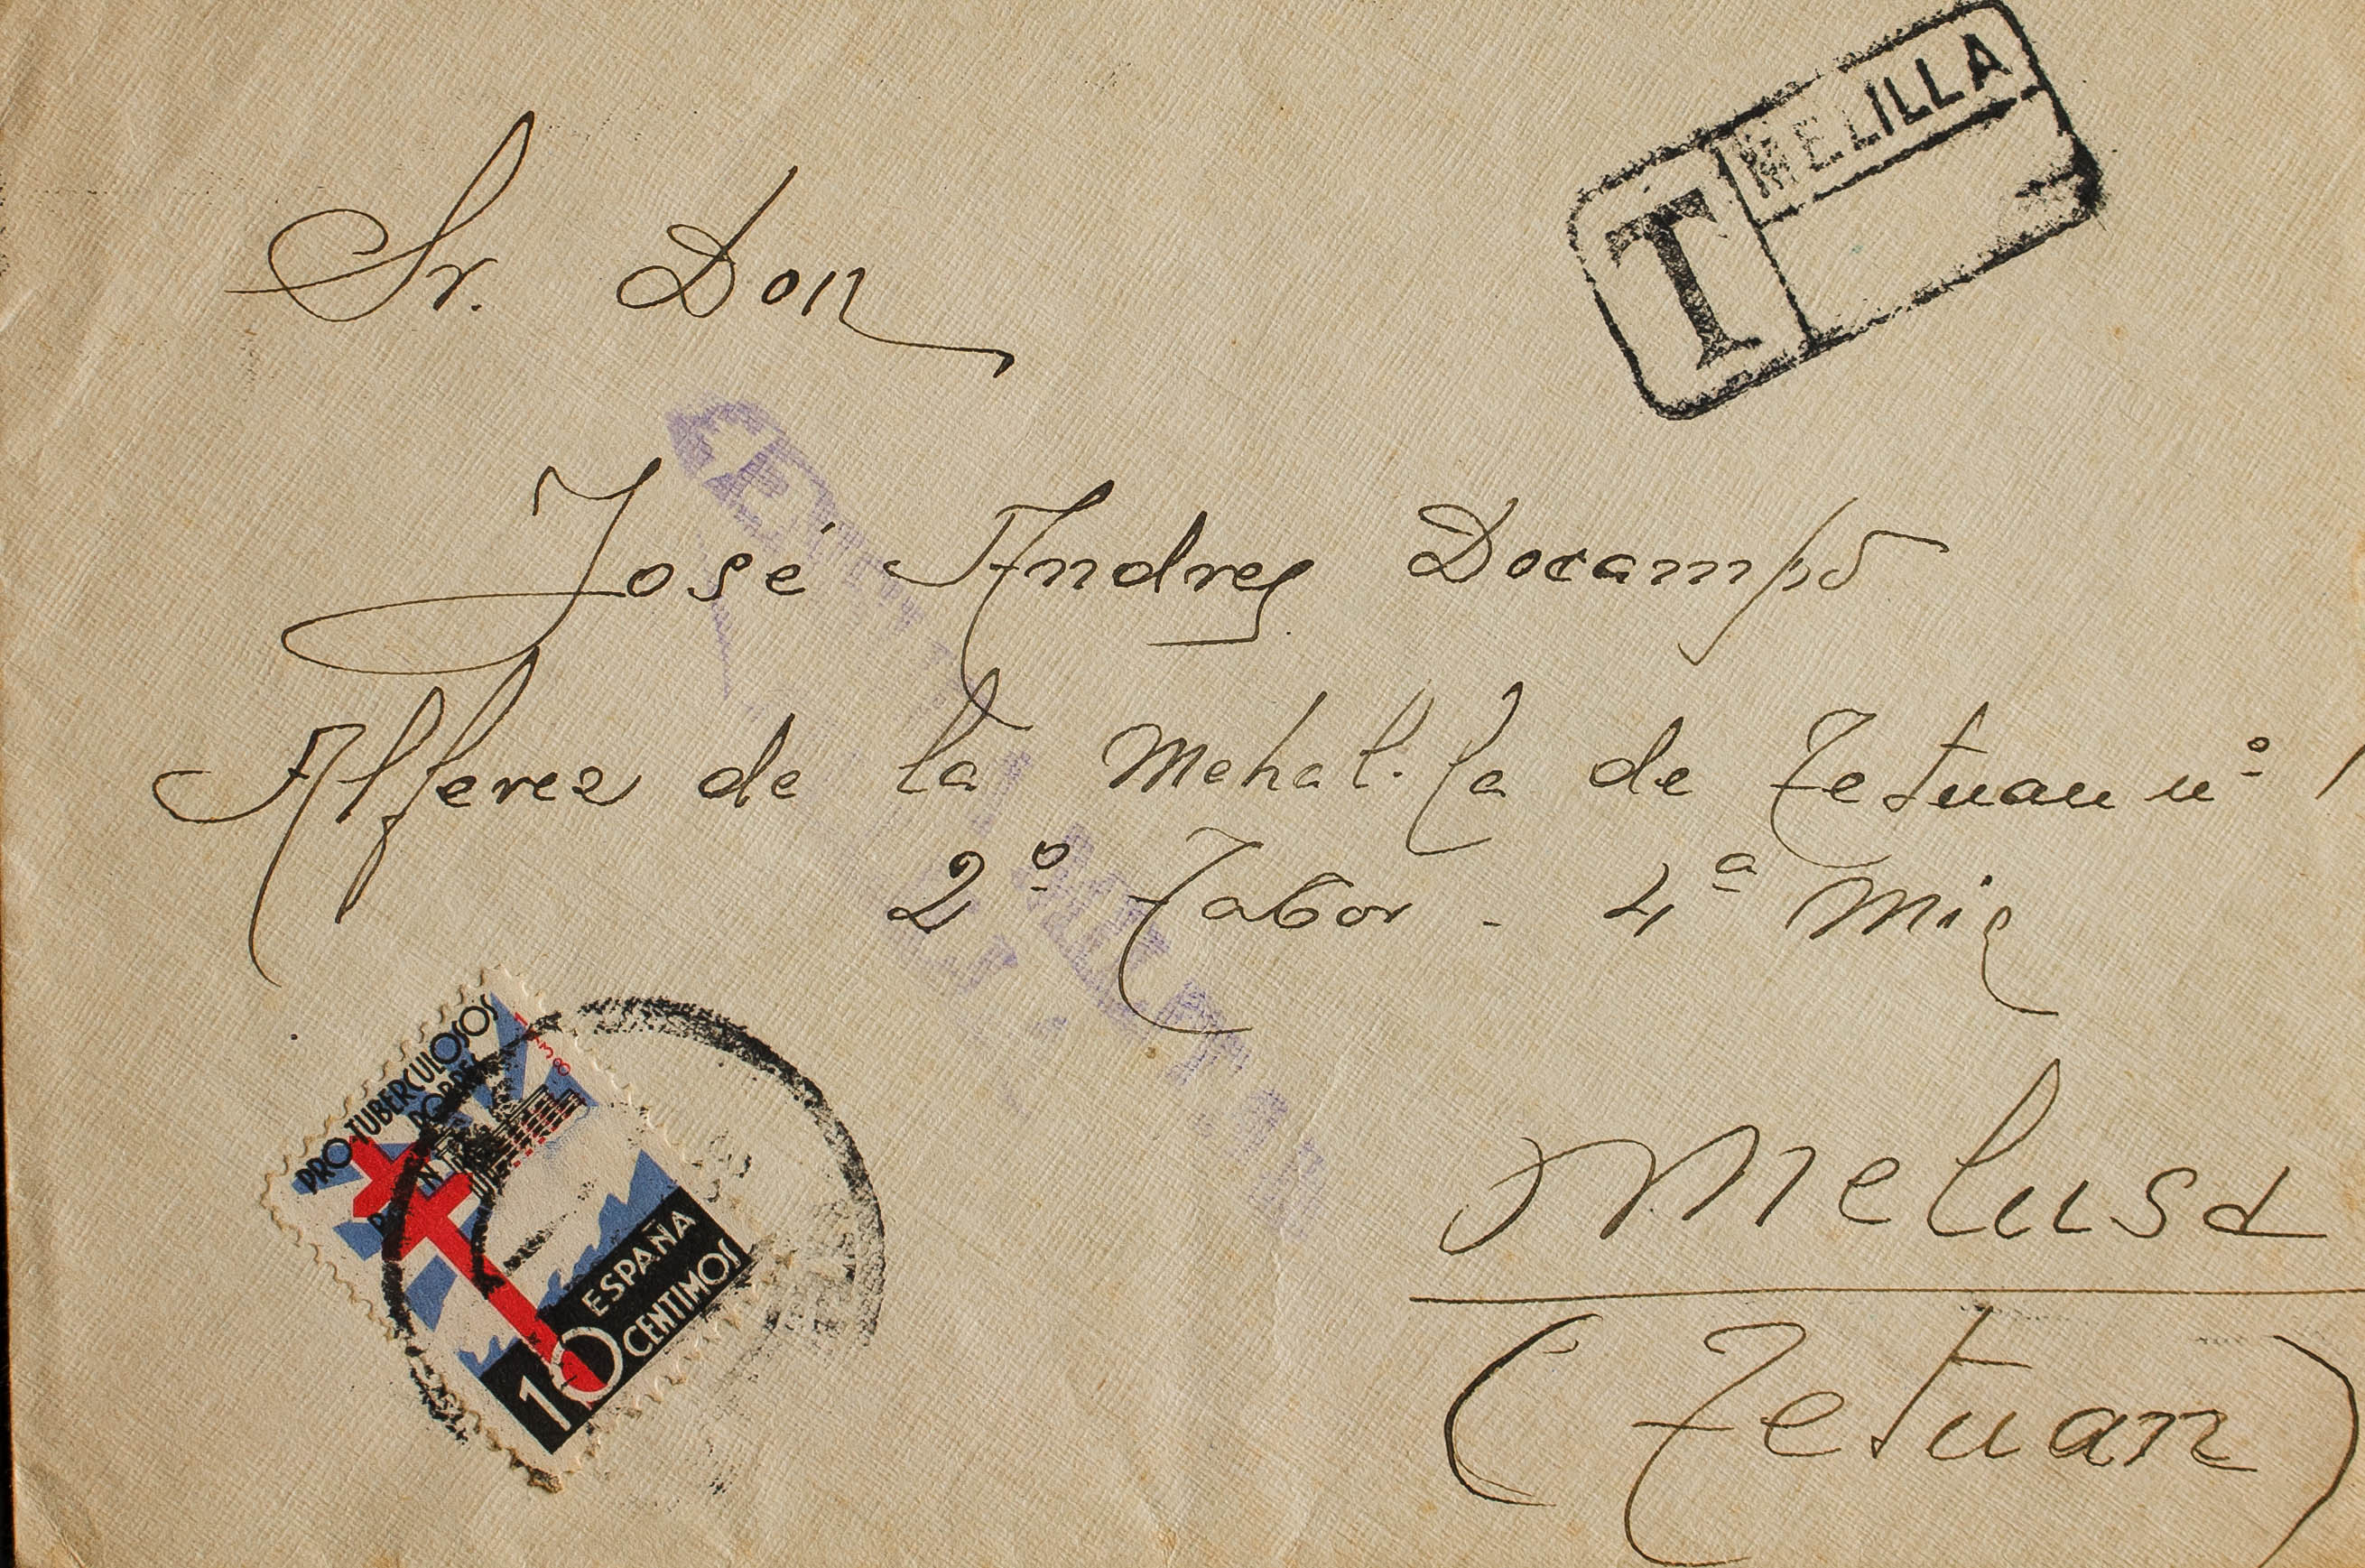 MELILLA
T
Sr. Don
José Andres Docampo
Alferez de la Mehal.la de Tetuan nº 1
2º Tabor - 4ª Mia
Melusa
(Tetuan)
CENSURA MILITAR
PRO TUBERCULOSOS
POBRES
1938
ESPAÑA
10 CENTIMOS